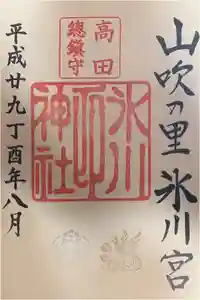 山吹の里 氷川宮
高田
總鎮守
氷川
神社
平成廿九丁酉年八月